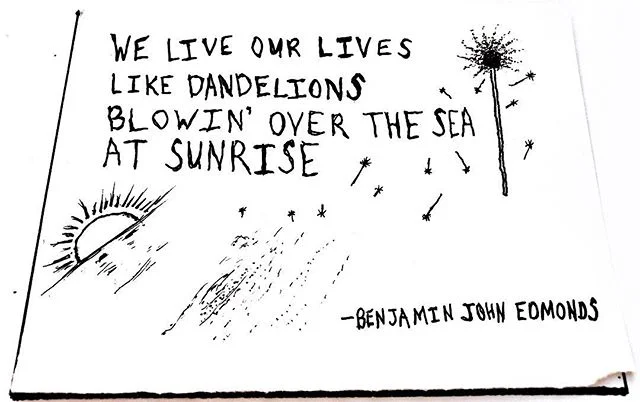 WE LIVE OUR LIVES
LIKE DANDELIONS
BLOWIN' OVER THE SEA
AT SUNRISE
-BENJAMIN JOHN EDMONDS